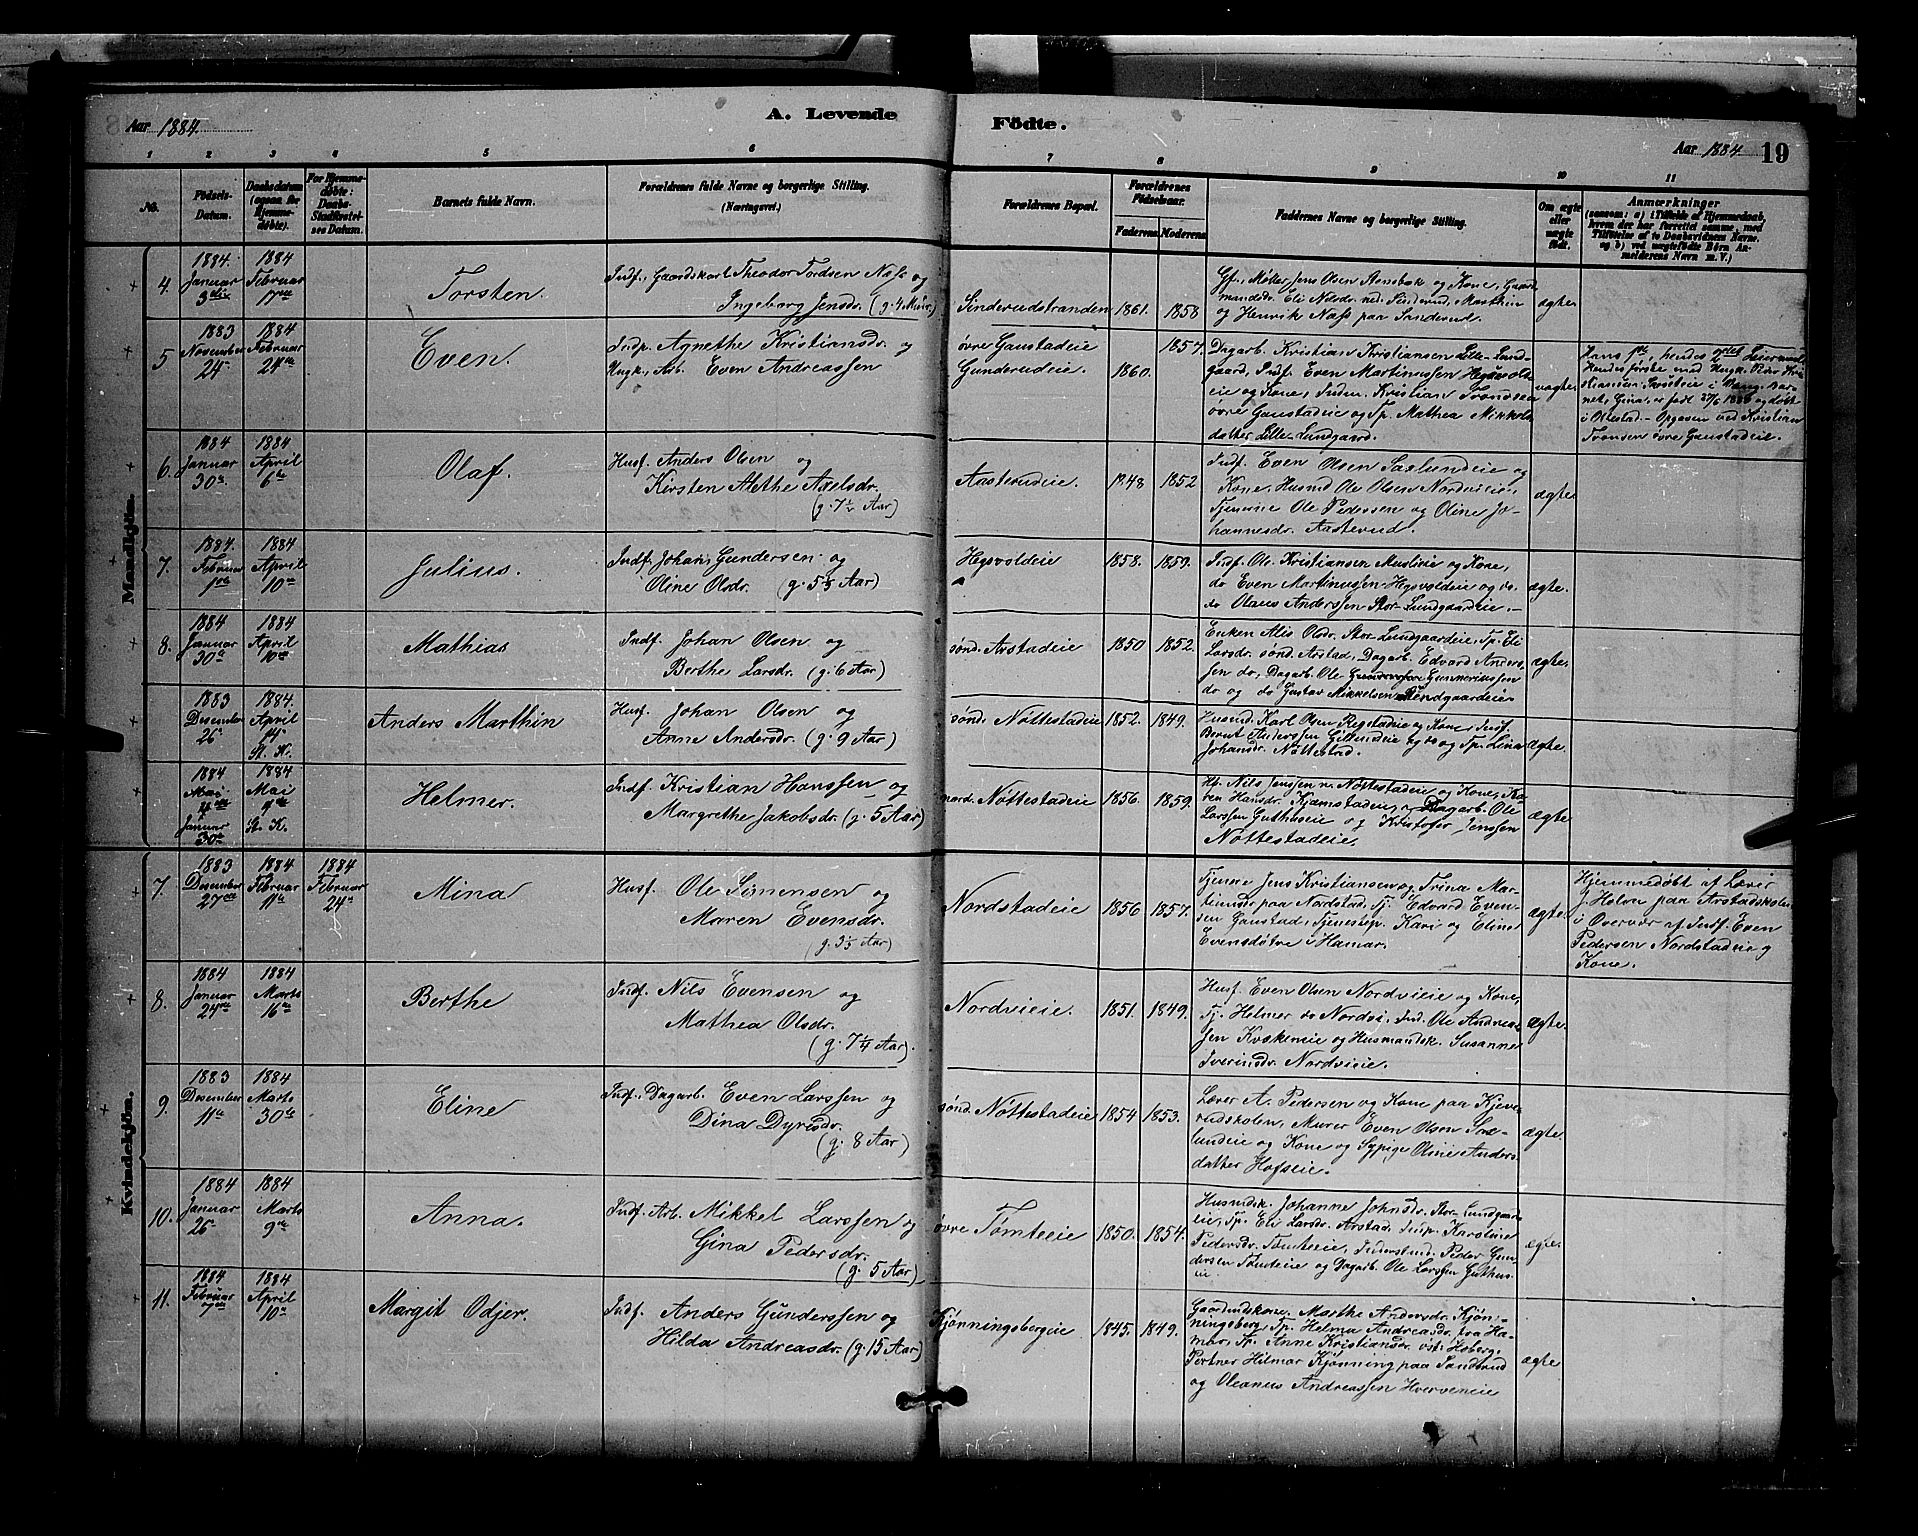 A. Levende Födte.
Aar 1884.
Aar 1884 19
1 2 3 4 5 6 7 8 9 10 11
No.
Födsels-Datum.
Daabsdatum (ogsaa for Hjemmedöbte).
For Hjemmedöbte: Daabs-Stadfæstelses Datum.
Barnets fulde Navn.
Forældrenes fulde Navne og borgerlige Stilling. (Næringsvei.)
Forældrenes Bopæl.
Forældrenes Födselsaar.
Faderens. Moderens.
Faddernes Navne og borgerlige Stilling.
Om ægte eller uægte födt.
Anmærkninger
(saasom: a) i Tilfælde af Hjemmedaab,
hvem der har forrettet samme, med
Tilföielse af to Daabsvidners Navne,
og b) ved uægtefödte Börn Anmelderens Navn m. V.)
Mandkjön.
4. 1884 Januar 3die
1884 Februar 17de
Torsten.
Indf. Gaardskarl Theodor Tordsen Næss og
Ingeborg Jensdr. (g. 4 Mdr.)
Sinderudstranden 1861. 1858
Gfr. Møller Jens Olsen Stensbak og Kone, Gaardmandsdr. Eli Nilsdr. nd. Sinderud, Marthin
og Henrik Næss paa Sanderud.
ægte
5 1883 November 24.
1884 Februar 24de
Even.
Indp. Agnethe Kristiansdr. og
Ungk. Arb. Even Andreassen
øvre Gaustadeie
Gunderudeie. 1860. 1857.
Dagarb. Kristian Kristiansen Lille-Lundgaard, Indf. Even Martinussen Hegsvoldeie og Kone, Inderst. Kristian Trondsen
øvre Gaustadeie og Tp. Mathea Mikkelsdatter Lille-Lundgaard.
uægte.
Hans 1ste, hendes 2det Leiermaal.
Hendes første med Ungk. Peder Kristiansen i Vang. Barnet, Gina, er født 27/6 188 og døbt
i Ottestad. - Opgaven ved Kristian
Tronsen øvre Gaustadeie.
6. 1884 Januar 30te
1884 April 6te
Olaf.
Husf. Anders Olsen og
Kirsten Alethe Axelsdr.
(g. 7½ Aar)
Aasterudeie. 1848 1852
Indf. Even Olsen Saxlundeie og
Kone, Husmd. Ole Olsen Nordvieie,
Tjenere Ole Pedersen og Oline Johannesdr. Aasterud.
ægte
7. 1884. Februar 1ste
1884 April 10de
Julius.
Indf. Johan Gundersen og
Oline Olsdr. (g. 5½ Aar)
Hegsvoldeie 1858. 1859.
Indf. Ole Kristiansen Muslieie og Kone,
do Even Martinussen Hegsvoldeie og do.
do Olaus Anderssen Stor-Lundgaardeie.
ægte.
8. 1884 Januar 30te
1884 April 10de
Mathias
Indf. Johan Olsen og
Berthe Larsdr. (g. 6 Aar)
sönd. Arstadeie 1850 1852.
Enken Alis Olsdr. Stor-Lundgaardeie, Tp. Eli
Larsdr. sönd. Arstad, Dagarb. Edvard Anderssen do, Dagarb. Ole Gunneriussen
do og do Gustav Mikkelsen Lundgaardeie
ægte.
1883 Desember 26
1884. April 14. St. K.
Anders Marthin
Husf. Johan Olsen og
Anne Andersdr. (g. 9 Aar)
sönd. Nöttestadeie 1852. 1849.
Husmd. Karl Olsen Regstadeie og Kone, Indf.
Bernt Anderssen Gillundeie og do og Tp. Lina
Johansdr. Nöttestad.
ægte.
1884 Januar 30te
1884 Mai St. K.
Helmer.
Indf. Kristian Hanssen og
Margrethe Jakobsdr. (g. 5 Aar)
nord. Nöttestadeie 1856. 1859.
Hf. Nils Jenssen n. Nöttestadeie og Kone, Karen Hansdr. Kjæmstadeie, Dagarb. Ole
Larssen Guthuseie og Kristofer Jenssen
Nöttestadeie.
ægte
Kvindekjön.
7. 1883 Desember 27de
1884 Februar 11te
1884 Februar 24de
Mina
Husf. Ole Simensen og
Maren Evensdr.
(g. 3½ Aar)
Nordstadeie 1856 1857.
Tjener Jens Kristiansen og Trina Marthinsdr. paa Nordstad, Tj. Edvard Evensen Gaustad, Tjenestep. Kari og Eline
Evensdøtre i Hamar.
ægte.
Hjemmedøbt af Lærer
J. Holen paa Arstadskolen
i Overvær af Indf. Even
Pedersen Nordstadeie og
Kone.
8. 1884 Januar 24de
1884 Marts 16de
Berthe
Indf. Nils Evensen og
Mathea Olsdr.
(g. 7¼ Aar).
Nordvieie. 1851. 1849.
Husf. Even Olsen Nordvieie og Kone,
Tj. Helmer do Nordvi, Ind. Ole Andreassen Kvækemeie og Husmandsk. Susanne
Iverinsdr. Nordvieie.
ægte.
9. 1883 Desember 11te
1884 Marts 30te
Eline
Indf. Dagarb. Even Larssen og
Dina Dyresdr.
(g. 8 Aar)
sönd. Nöttestadeie 1854 1853.
Lærer A. Pedersen og Kone paa Kjeverudskolen, Murer Even Olsen Saxlundeie og Kone og Sypige Oline Andersdatter Hofseie.
ægte.
10. 1884 Januar 26
1884 Marts 9de
Anna.
Indf. Arb. Mikkel Larssen og
Gina Pedersdr.
(g. 5 Aar)
øvre Tomteeie 1850. 1854.
Husmdsk. Johanne Johnsdr. Stor-Lundgaardeie, Tp. Eli Larsdr. Arstad, Indp. Karoline
Pedersdr. Tomteeie, Inderstmd. Peder Gundersen Tomteeie og Dagarb. Ole Larssen Guthuseie.
ægte.
11. 1884 Februar 7de
1884 April 10de
Margit Odjer.
Indf. Anders Gunderssen og
Hilda Andreasdr. (g. 15 Aar)
Kjønningsbergeie 1845. 1849.
Gaardmdskone Marthe Andersdr. Kjønningsberg, Tp. Helma Andreasdr. fra Hamar, Tp. Anne Kristiansdr. østr. Hoberg,
Portner Hilmar Kjønning paa Sanderud
og Oleanus Andreassen Hverveneie
ægte